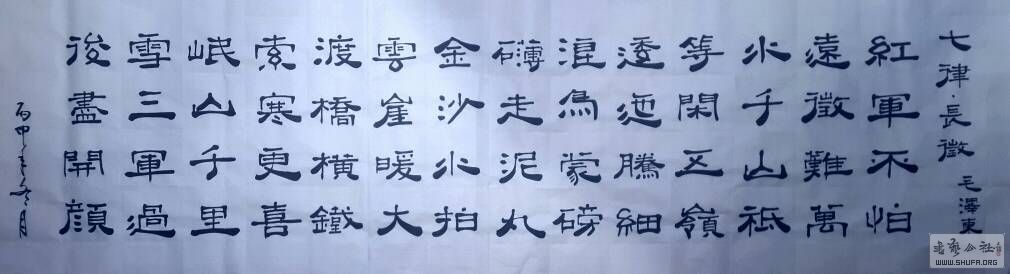 七律·長徵
毛澤東
紅軍不怕
遠徵難萬
水千山祗
等閑五嶺
逶迤騰細
浪烏蒙磅
礴走泥丸
金沙水拍
雲崖暖大
渡橋橫鐵
索寒更喜
岷山千里
雪三軍過
後盡開顏
丙申月
公社
WWW.SHUFA.ORG